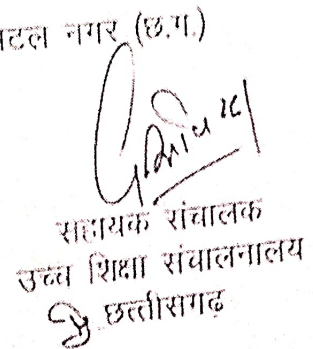 नगर (छ.ग.)
सहायक संचालक
उच्च शिक्षा संचालनालय
छत्तीसगढ़